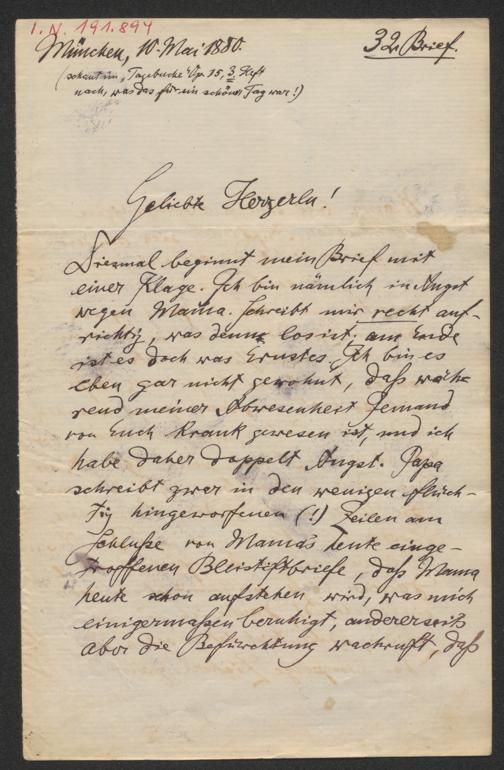 I.N. 191.894
München, 10. Mai 1880.
32. Brief.
(schaut im „Tagebuche“ Op. 15, 3. Heft
nach, was das für ein schöner Tag war!)
Geliebte Herzerln!
Diesmal beginnt mein Brief mit
einer Klage. Ich bin nämlich in Angst
wegen Mama. Schreibt mir recht auf-
richtig, was denn los ist, am Ende
ist es doch was Ernstes. Ich bin es
eben gar nicht gewohnt, daß wäh-
rend meiner Abwesenheit Jemand
von Euch krank gewesen ist, und ich
habe daher doppelt Angst. Papa
schreibt zwar in den wenigen flüch-
tig hingeworfenen (!) Zeilen am
Schluße von Mama's heute einge-
troffenen Bleistiftbriefe, daß Mama
heute schon aufstehen wird, was mich
einigermaßen beruhigt, andererseits
aber die Befürchtung wachruft, daß